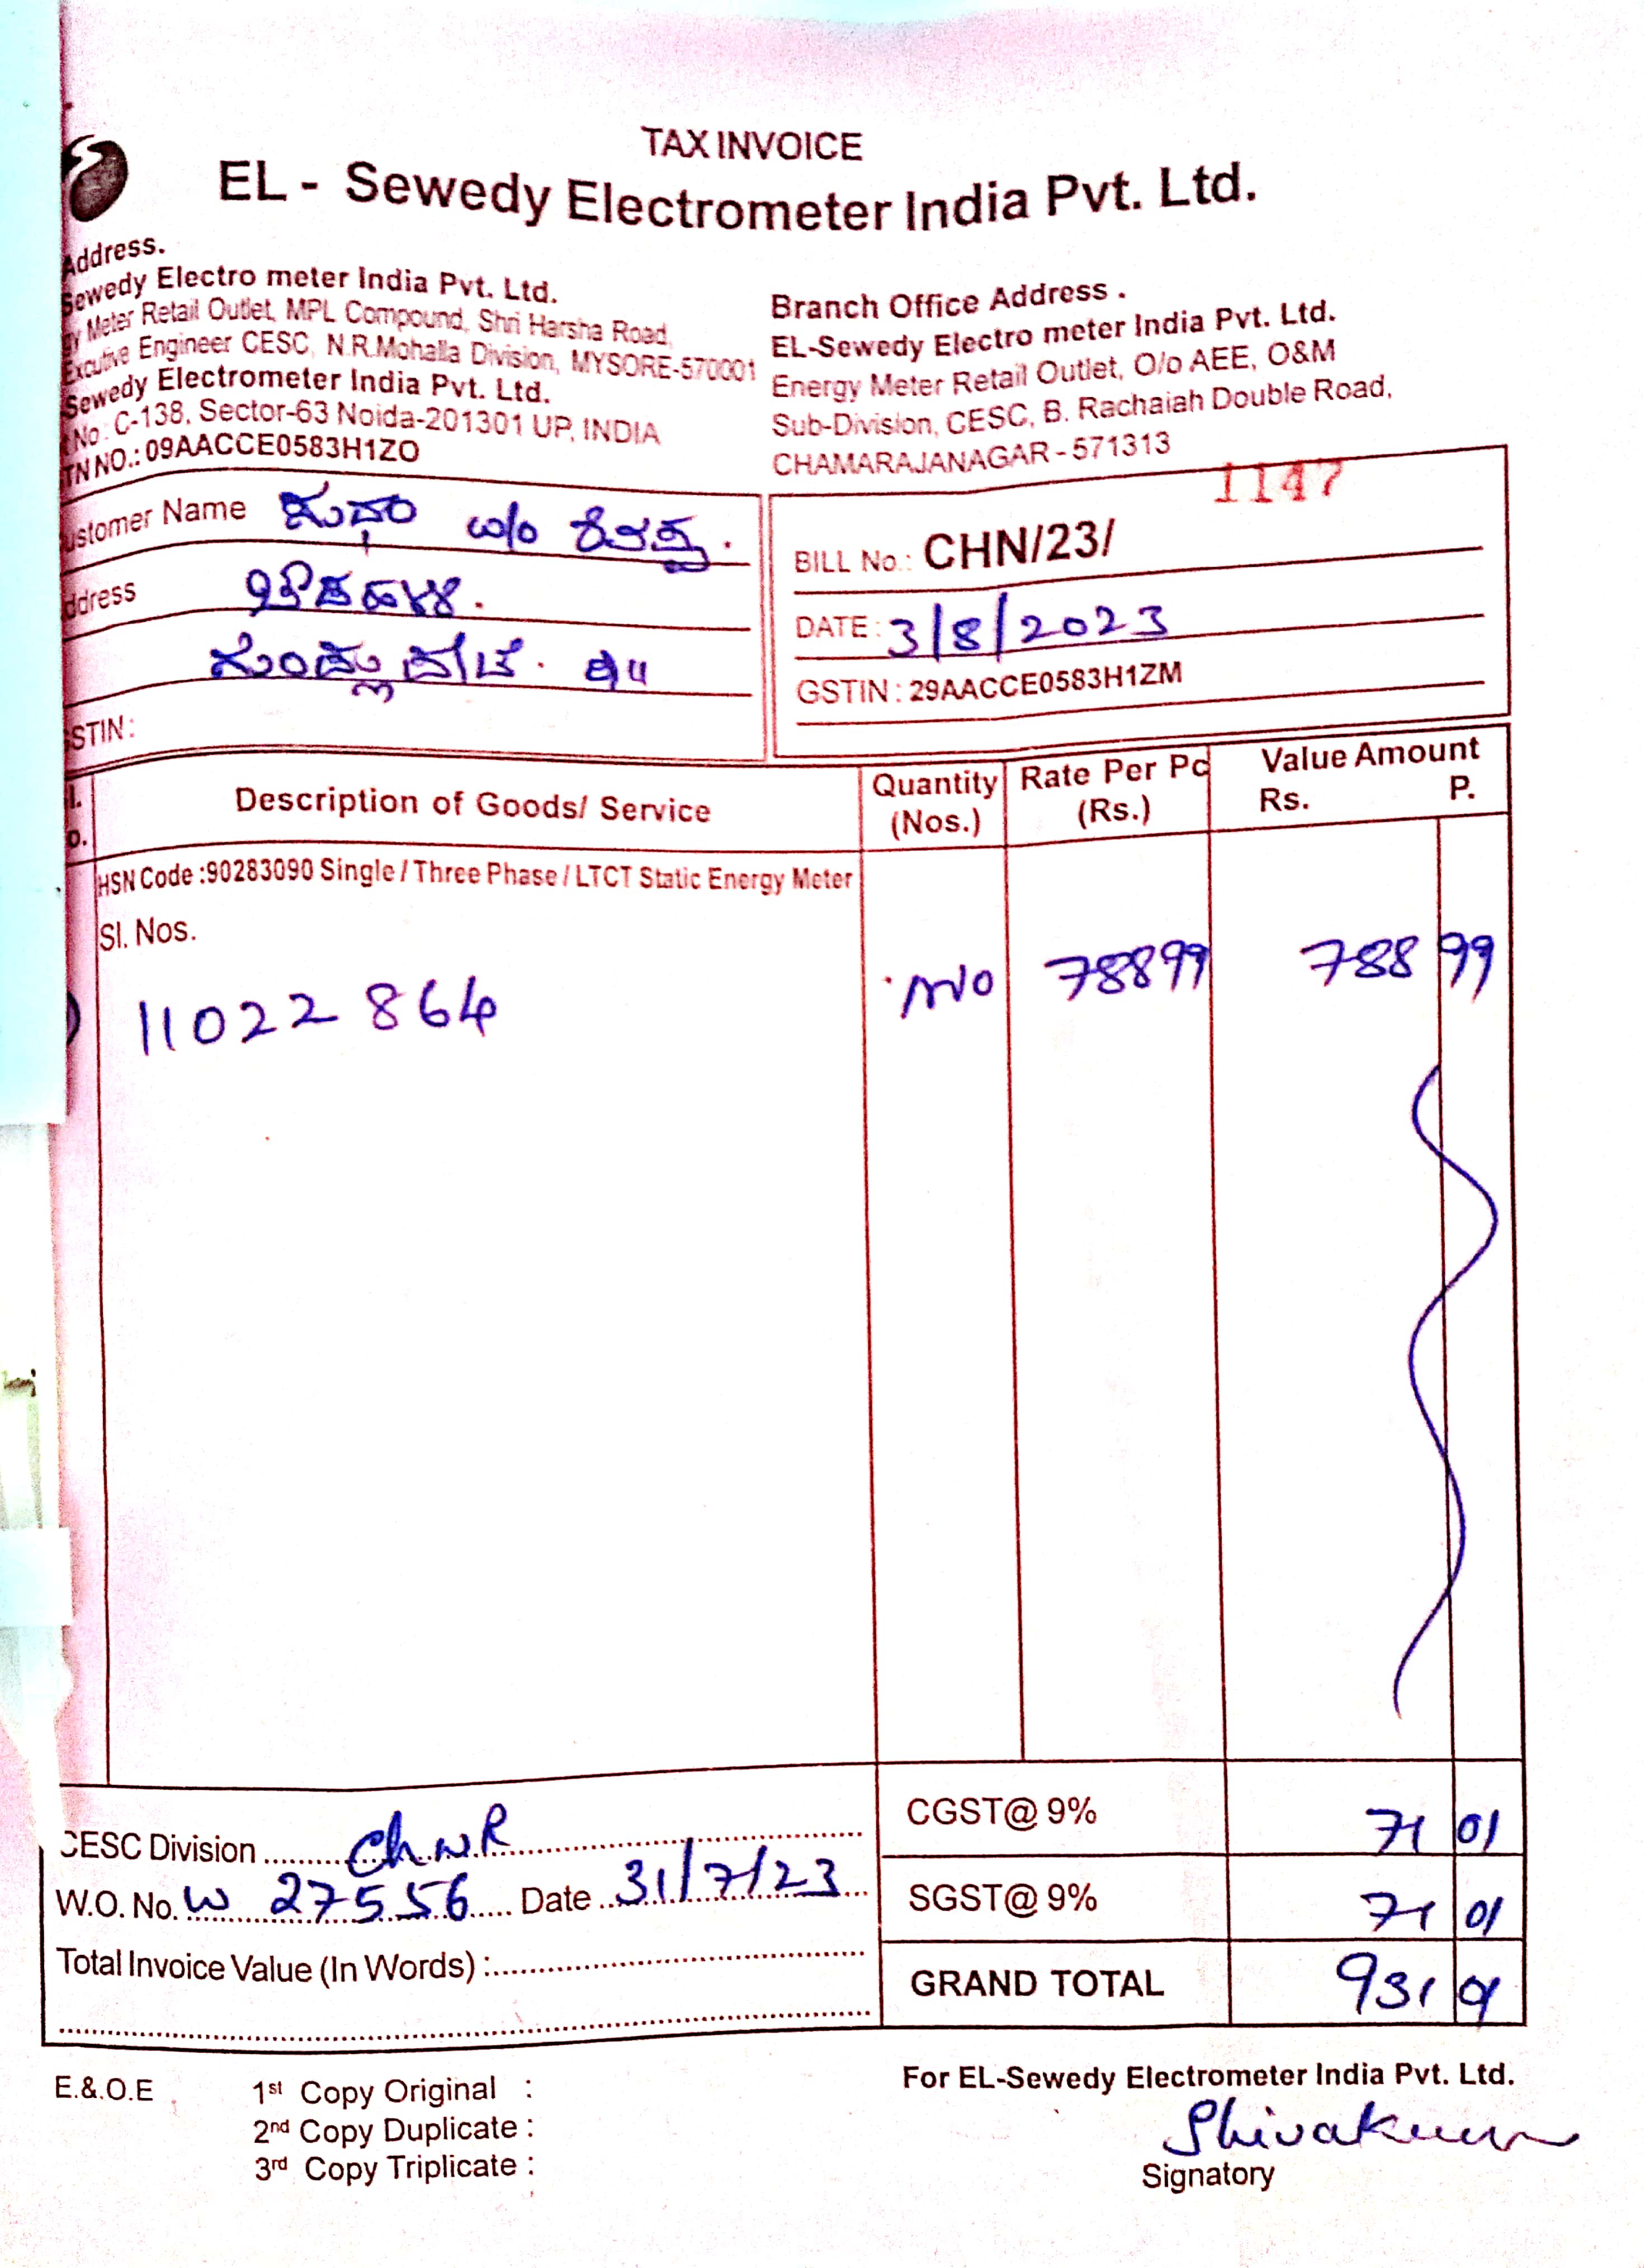 TAX INVOICE
EL - Sewedy Electrometer India Pvt. Ltd.
Address.
Sewedy Electro meter India Pvt. Ltd.
Meter Retail Outlet, MPL Compound, Shri Harsha Road,
Excutive Engineer CESC, N.R.Mohalla Division, MYSORE-570001
Sewedy Electrometer India Pvt. Ltd.
No: C-138, Sector-63 Noida-201301 UP, INDIA
TN NO.: 09AACCE0583H1ZO
Branch Office Address .
EL-Sewedy Electro meter India Pvt. Ltd.
Energy Meter Retail Outlet, O/o AEE, O&M
Sub-Division, CESC, B. Rachaiah Double Road,
CHAMARAJANAGAR - 571313
ustomer Name w/o
ddress
STIN :
1147
BILL No.: CHN/23/
DATE : 3/8/2023
GSTIN : 29AACCE0583H1ZM
l. o. Description of Goods/ Service Quantity (Nos.) Rate Per Pc (Rs.) Value Amount Rs. P.
HSN Code :90283090 Single / Three Phase / LTCT Static Energy Meter
Sl. Nos.
11022864 78899 788 99
CESC Division ChNR
W.O. No. W 27556 Date 31/7/23
Total Invoice Value (In Words) :
CGST@ 9% 71 01
SGST@ 9% 71 01
GRAND TOTAL 931 01
E.&.O.E
1st Copy Original :
2nd Copy Duplicate :
3rd Copy Triplicate :
For EL-Sewedy Electrometer India Pvt. Ltd.
Shivakumar
Signatory